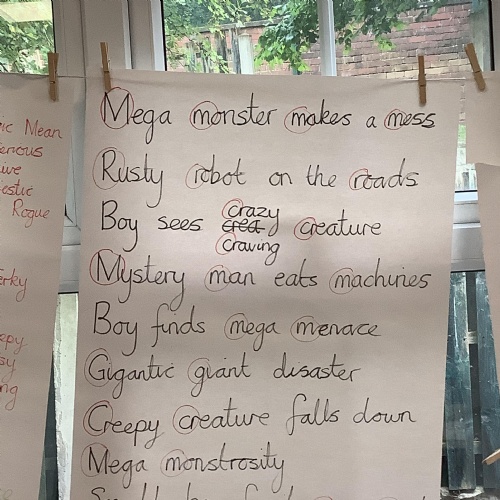 Mean
Rogue
Mega monster makes a mess
Rusty robot on the roads
Boy sees crazy creature
craving
Mystery man eats machines
Boy finds mega menace
Gigantic giant disaster
Creepy creature falls down
Mega monstrosity